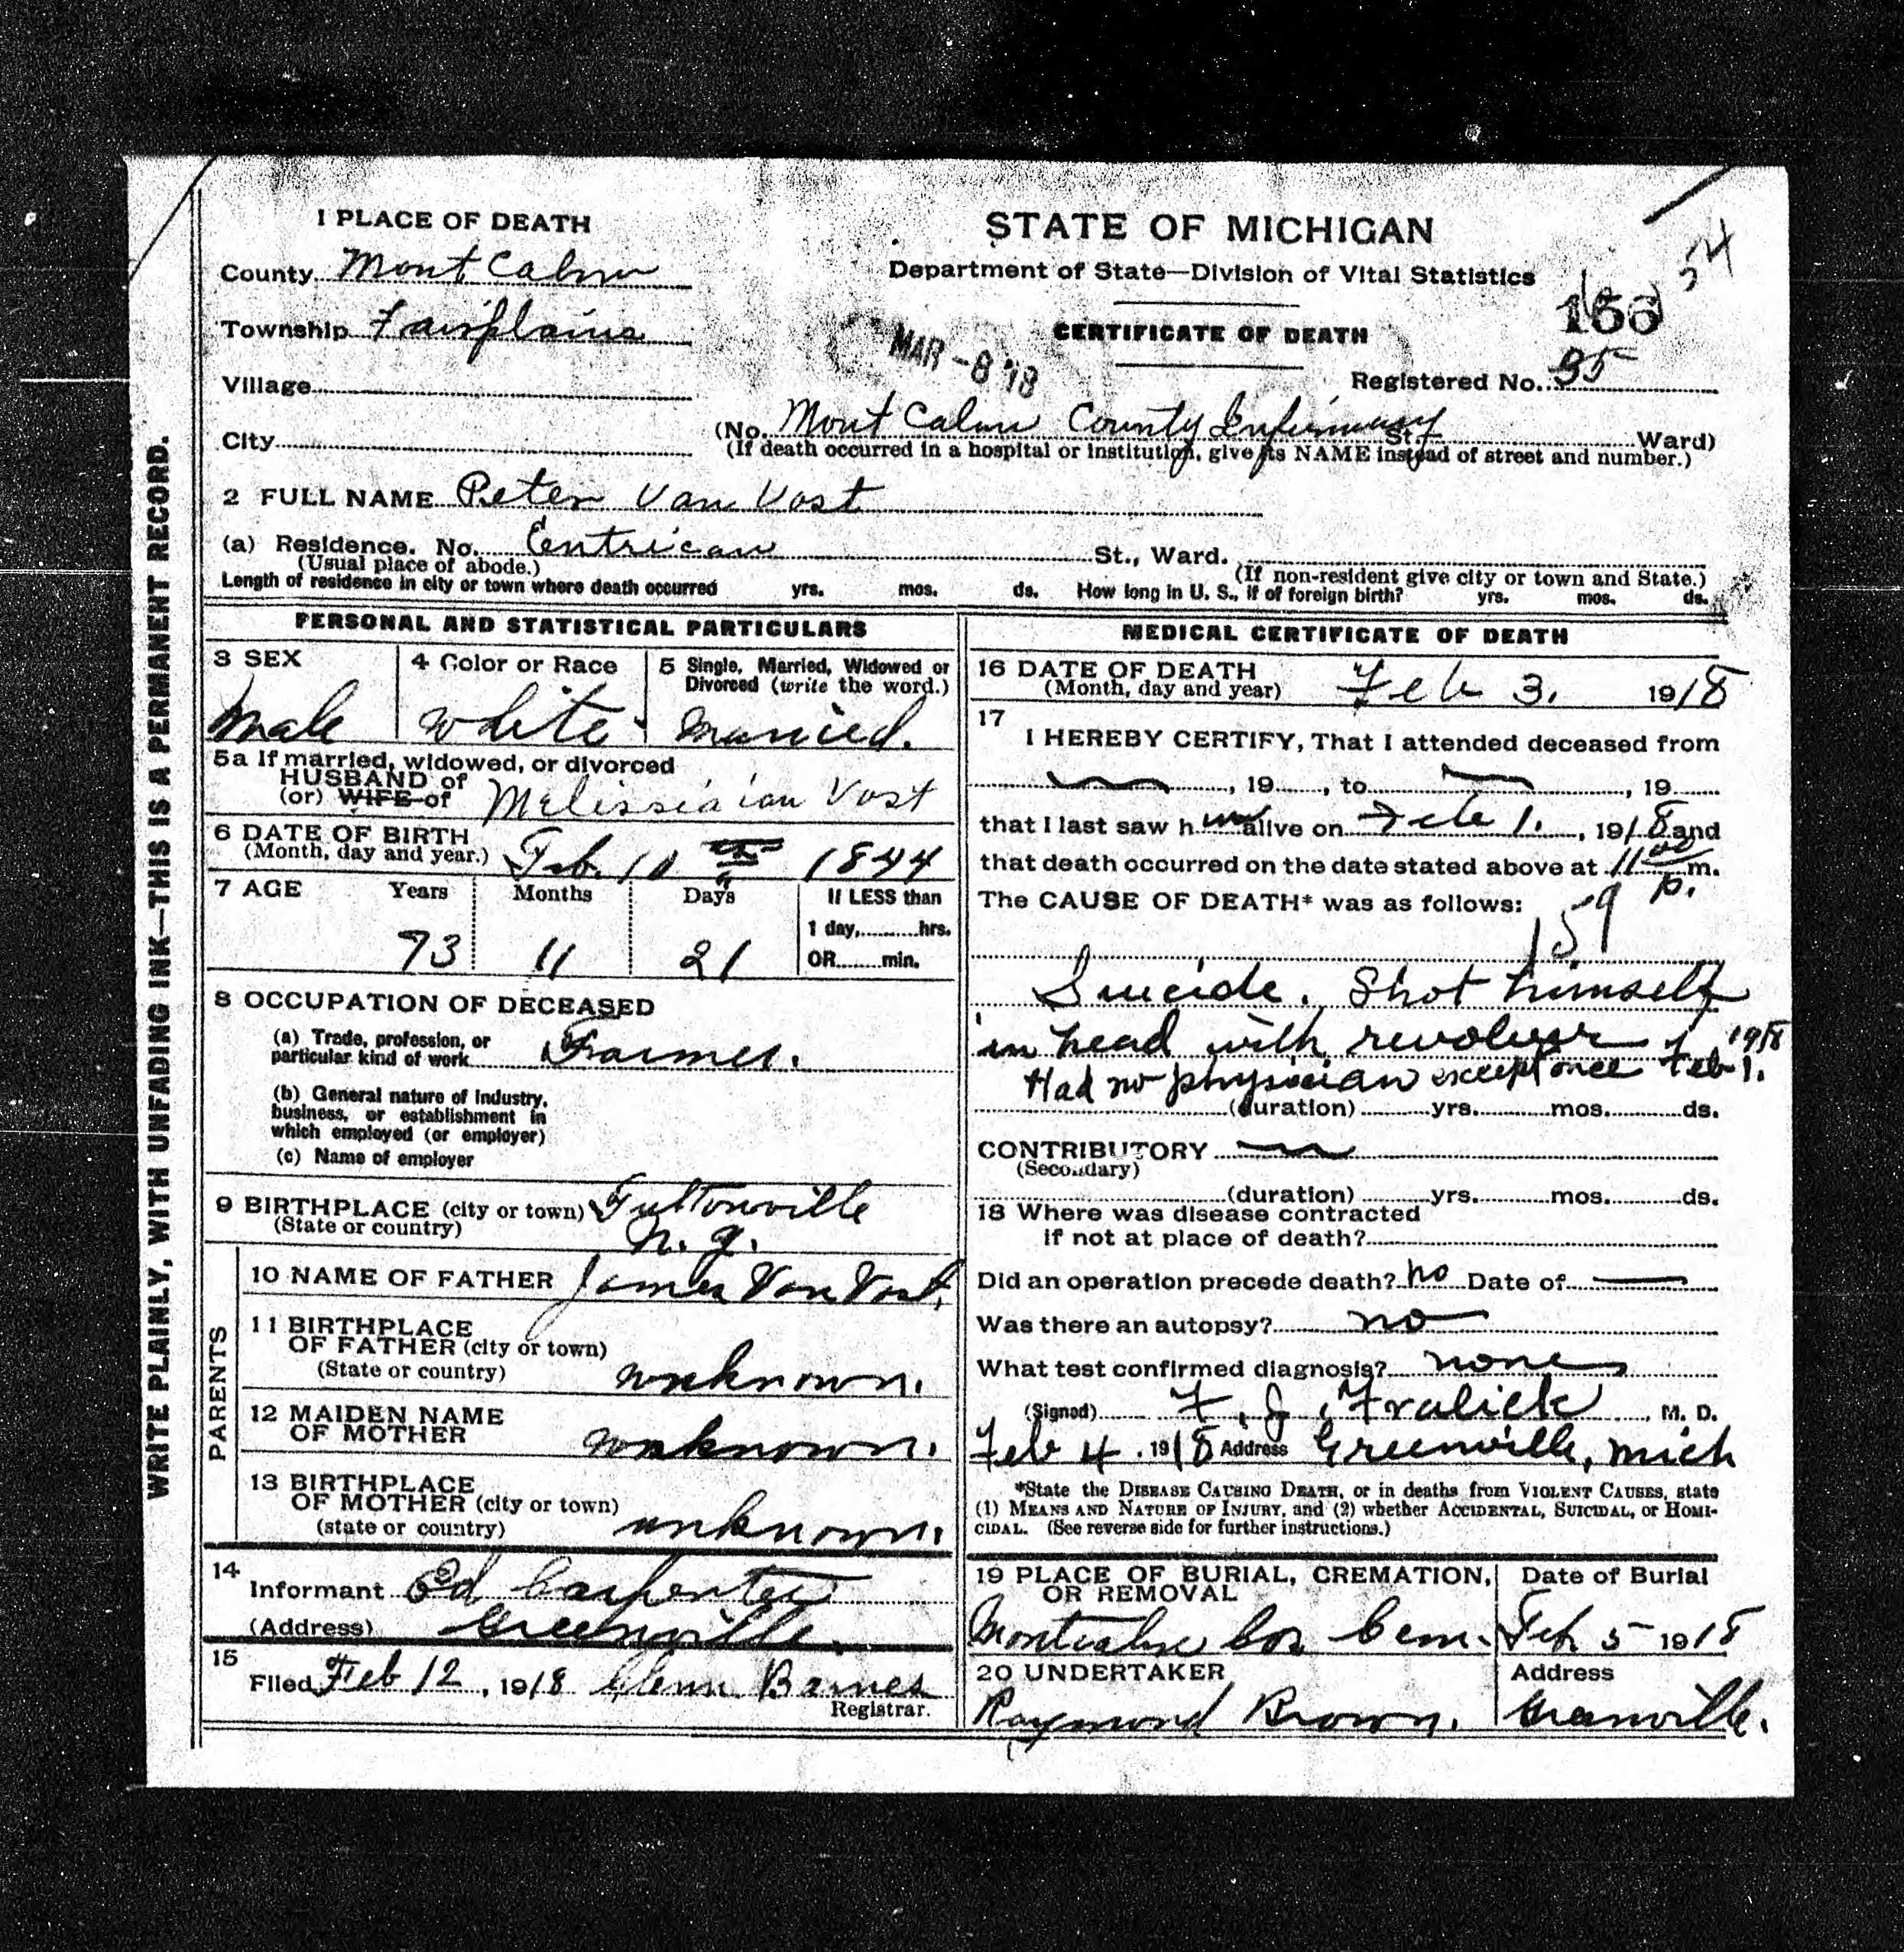 WRITE PLAINLY, WITH UNFADING INK—THIS IS A PERMANENT RECORD.
1 PLACE OF DEATH
County Mont Calm
Township Fairplains
Village
City
STATE OF MICHIGAN
Department of State—Division of Vital Statistics
CERTIFICATE OF DEATH
MAR -8 '18
54
Registered No. 35
(No. Mont Calm County Infirmary St., Ward)
(If death occurred in a hospital or institution, give its NAME instead of street and number.)
2 FULL NAME Peter Van Vost
(a) Residence. No. Entrican St., Ward.
(Usual place of abode.) (If non-resident give city or town and State.)
Length of residence in city or town where death occurred yrs. mos. ds. How long in U. S., if of foreign birth? yrs. mos. ds.
PERSONAL AND STATISTICAL PARTICULARS
3 SEX
Male
4 Color or Race
White
5 Single, Married, Widowed or
Divorced (write the word.)
Married.
5a If married, widowed, or divorced
HUSBAND of
(or) WIFE of Melissia van Vost
6 DATE OF BIRTH
(Month, day and year.) Feb. 10 th 1844
7 AGE Years Months Days If LESS than
1 day, hrs.
73 11 21 OR min.
8 OCCUPATION OF DECEASED
(a) Trade, profession, or
particular kind of work Farmer.
(b) General nature of industry,
business, or establishment in
which employed (or employer)
(c) Name of employer
9 BIRTHPLACE (city or town) Fultonville
(State or country) N. y.
PARENTS
10 NAME OF FATHER James Van Vost.
11 BIRTHPLACE
OF FATHER (city or town)
(State or country) unknown.
12 MAIDEN NAME
OF MOTHER unknown.
13 BIRTHPLACE
OF MOTHER (city or town)
(state or country) unknown.
14
Informant Ed Carpenter
(Address) Greenville.
15
Filed Feb 12, 1918 Glenn Barnes
Registrar.
MEDICAL CERTIFICATE OF DEATH
16 DATE OF DEATH
(Month, day and year) Feb 3. 1918
17
I HEREBY CERTIFY, That I attended deceased from
, 19 , to , 19
that I last saw him alive on Feb 1. , 1918 and
that death occurred on the date stated above at 11 00 p. m.
The CAUSE OF DEATH* was as follows:
159
Suicide. Shot himself
in head with revolver
Had no physician except once Feb 1. 1918
(duration) yrs. mos. ds.
CONTRIBUTORY
(Secondary)
(duration) yrs. mos. ds.
18 Where was disease contracted
if not at place of death?
Did an operation precede death? no Date of —
Was there an autopsy? no
What test confirmed diagnosis? none
(Signed) F. J. Fralick, M. D.
Feb 4. 1918 Address Greenville, Mich
*State the DISEASE CAUSING DEATH, or in deaths from VIOLENT CAUSES, state
(1) MEANS AND NATURE OF INJURY, and (2) whether ACCIDENTAL, SUICIDAL, or HOMI-
CIDAL. (See reverse side for further instructions.)
19 PLACE OF BURIAL, CREMATION,
OR REMOVAL
Montcalm Co Cem.
Date of Burial
Feb 5 1918
20 UNDERTAKER
Raymond Brown.
Address
Greenville.